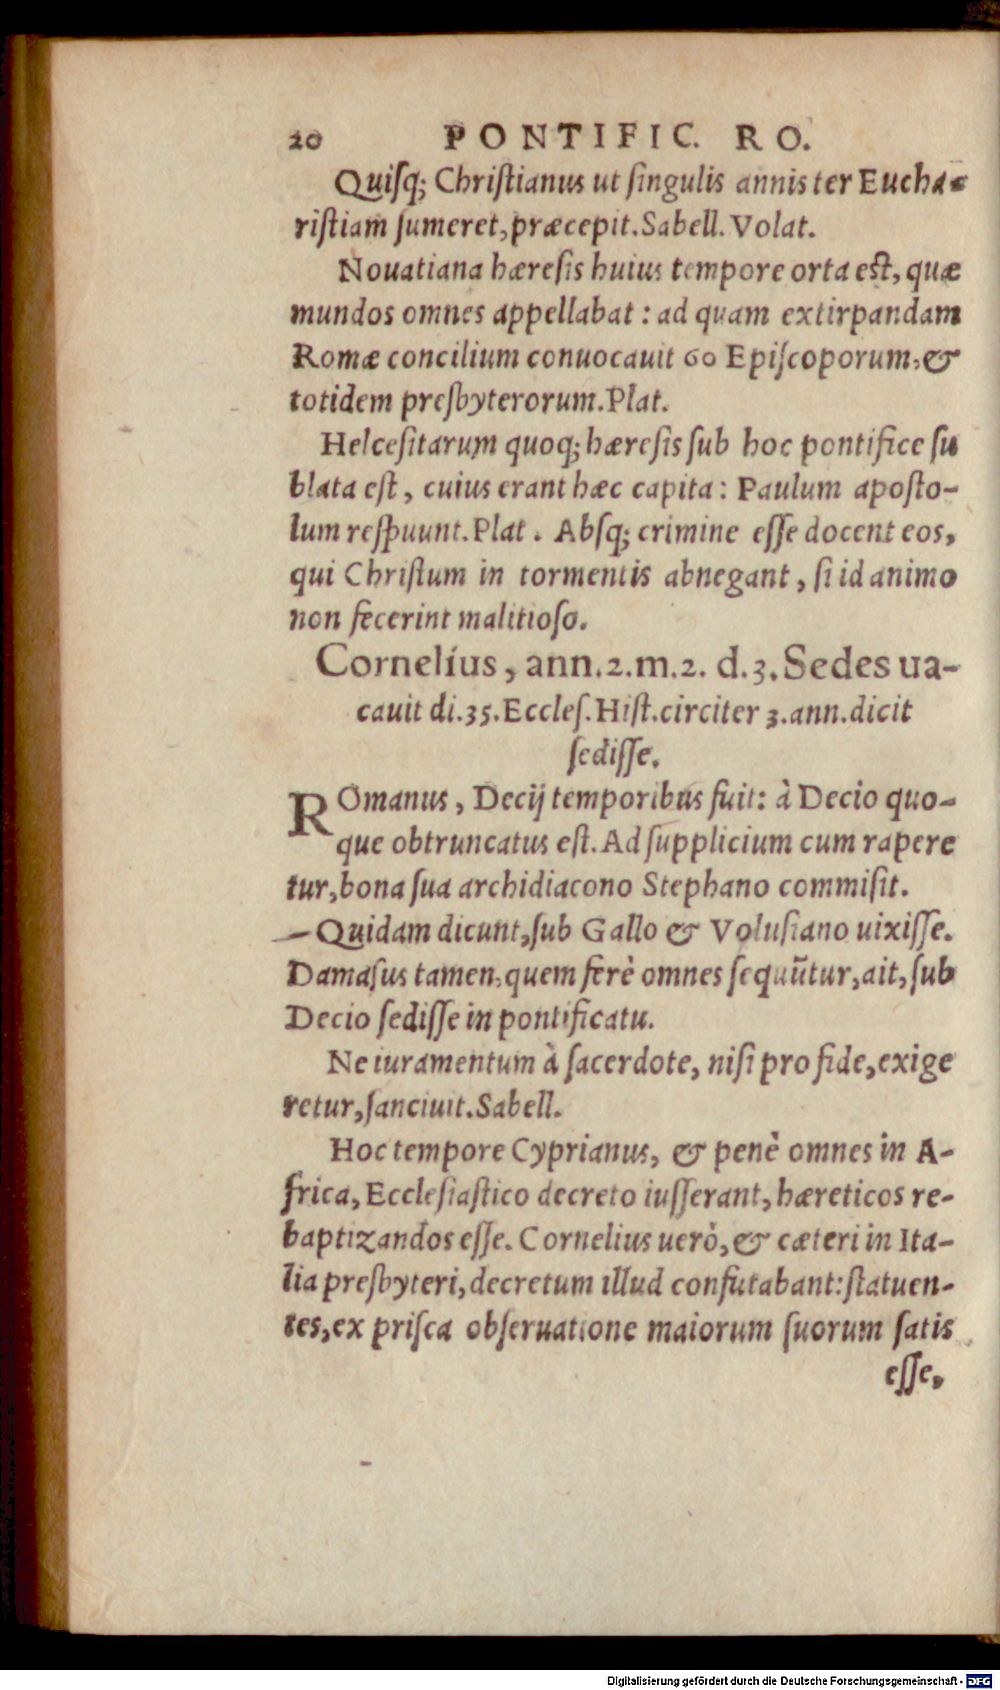 20 PONTIFIC. RO.
Quiſq; Chriſtianus ut ſingulis annis ter Eucha-
riſtiam ſumeret, præcepit. Sabell. Volat.
Nouatiana hæreſis huius tempore orta eſt, quæ
mundos omnes appellabat : ad quam extirpandam
Romæ concilium conuocauit 60 Epiſcoporum, &
totidem presbyterorum. Plat.
Helceſitarum quoq; hæreſis ſub hoc pontifice ſu
blata eſt, cuius erant hæc capita : Paulum apoſto-
lum reſpuunt. Plat. Abſq; crimine eſſe docent eos,
qui Chriſtum in tormentis abnegant, ſi id animo
non fecerint malitioſo.
Cornelíus, ann.2.m.2. d.3. Sedes ua-
cauit di.35. Eccleſ. Hiſt. circiter 3. ann. dicit
ſediſſe.
ROmanus, Decij temporibus fuit: à Decio quo-
que obtruncatus eſt. Ad ſupplicium cum rapere
tur, bona ſua archidiacono Stephano commiſit.
Quidam dicunt, ſub Gallo & Voluſiano uixiſſe.
Damaſus tamen, quem ferè omnes ſequūtur, ait, ſub
Decio ſediſſe in pontificatu.
Ne iuramentum à ſacerdote, niſi pro fide, exige
retur, ſanciuit. Sabell.
Hoc tempore Cyprianus, & penè omnes in A-
frica, Eccleſiaſtico decreto iuſſerant, hæreticos re-
baptizandos eſſe. Cornelius uerò, & cæteri in Ita-
lia presbyteri, decretum illud confutabant: ſtatuen-
tes, ex priſca obſeruatione maiorum ſuorum ſatis
eſſe,
Digitalisierung gefördert durch die Deutsche Forschungsgemeinschaft - DFG